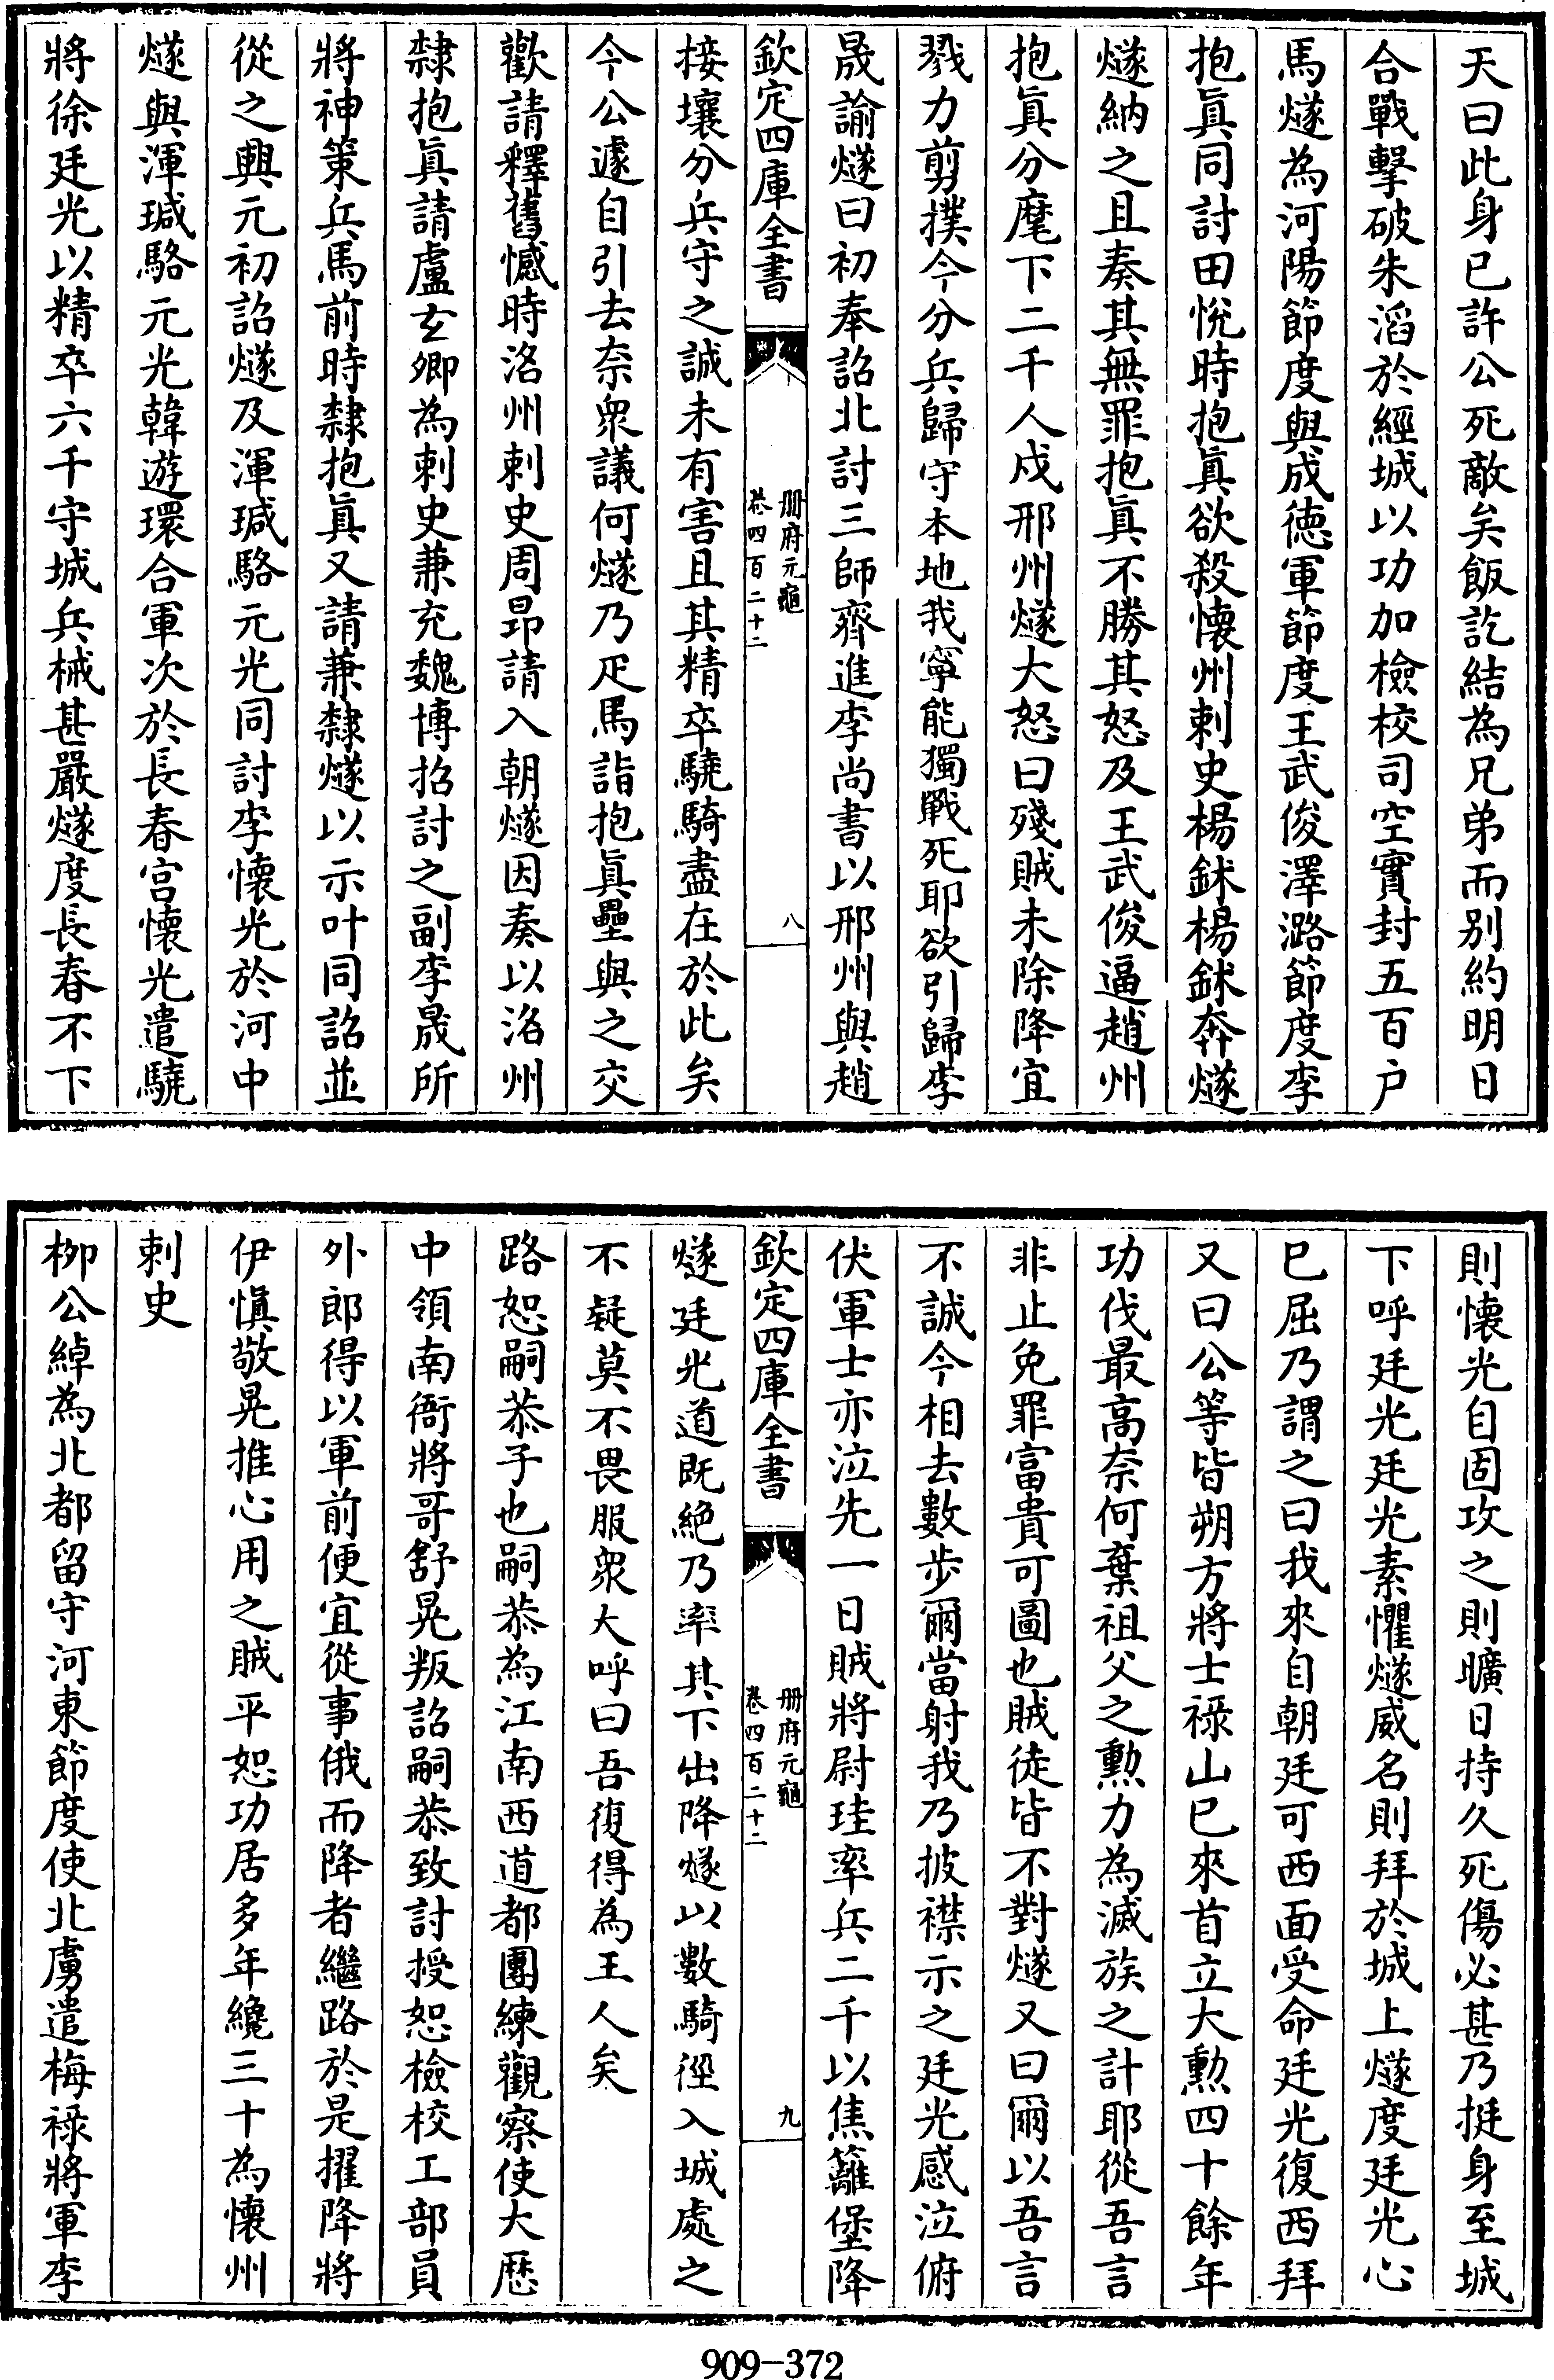 天曰此身已許公死敵矣飯訖結為兄弟而别約明日
合戰擊破朱滔於經城以功加檢校司空實封五百户
馬燧為河陽節度與成徳軍節度王武俊澤潞節度李
抱真同討田悦時抱真欲殺懐州刺史楊鉥楊鉥奔燧
燧納之且奏其無罪抱真不勝其怒及王武俊逼趙州
抱真分麾下二千人戍邢州燧大怒曰殘賊未除降宜
戮力剪撲今分兵歸守本地我寧能獨戰死耶欲引歸李
晟諭燧曰初奉詔北討三師齊進李尚書以邢州與趙
欽定四庫全書
册府元龜
卷四百二十二
八
接壤分兵守之誠未有害且其精卒驍騎盡在於此矣
今公遽自引去奈衆議何燧乃疋馬詣抱真壘與之交
歡請釋舊憾時洛州刺史周昂請入朝燧因奏以洛州
隸抱真請盧玄卿為刺史兼充魏博招討之副李晟所
將神策兵馬前時隸抱真又請兼隸燧以示叶同詔並
從之興元初詔燧及渾瑊駱元光同討李懐光於河中
燧與渾瑊駱元光韓遊環合軍次於長春宫懐光遣驍
將徐廷光以精卒六千守城兵械甚嚴燧度長春不下
則懐光自固攻之則曠日持久死傷必甚乃挺身至城
下呼廷光廷光素懼燧威名則拜於城上燧度廷光心
已屈乃謂之曰我來自朝廷可西面受命廷光復西拜
又曰公等皆朔方將士禄山已來首立大勲四十餘年
功伐最高奈何棄祖父之勲力為滅族之計耶從吾言
非止免罪富貴可圖也賊徒皆不對燧又曰爾以吾言
不誠今相去數步爾當射我乃披襟示之廷光感泣俯
伏軍士亦泣先一日賊將尉珪率兵二千以焦籬堡降
欽定四庫全書
册府元龜
卷四百二十二
九
燧廷光道既絶乃率其下出降燧以數騎徑入城處之
不疑莫不畏服衆大呼曰吾復得為王人矣
路恕嗣恭子也嗣恭為江南西道都團練觀察使大厯
中領南衙將哥舒晃叛詔嗣恭致討授恕檢校工部員
外郎得以軍前便宜從事俄而降者繼路於是擢降將
伊慎敬晃推心用之賊平恕功居多年纔三十為懐州
刺史
柳公綽為北都留守河東節度使北虜遣梅禄將軍李
909-372